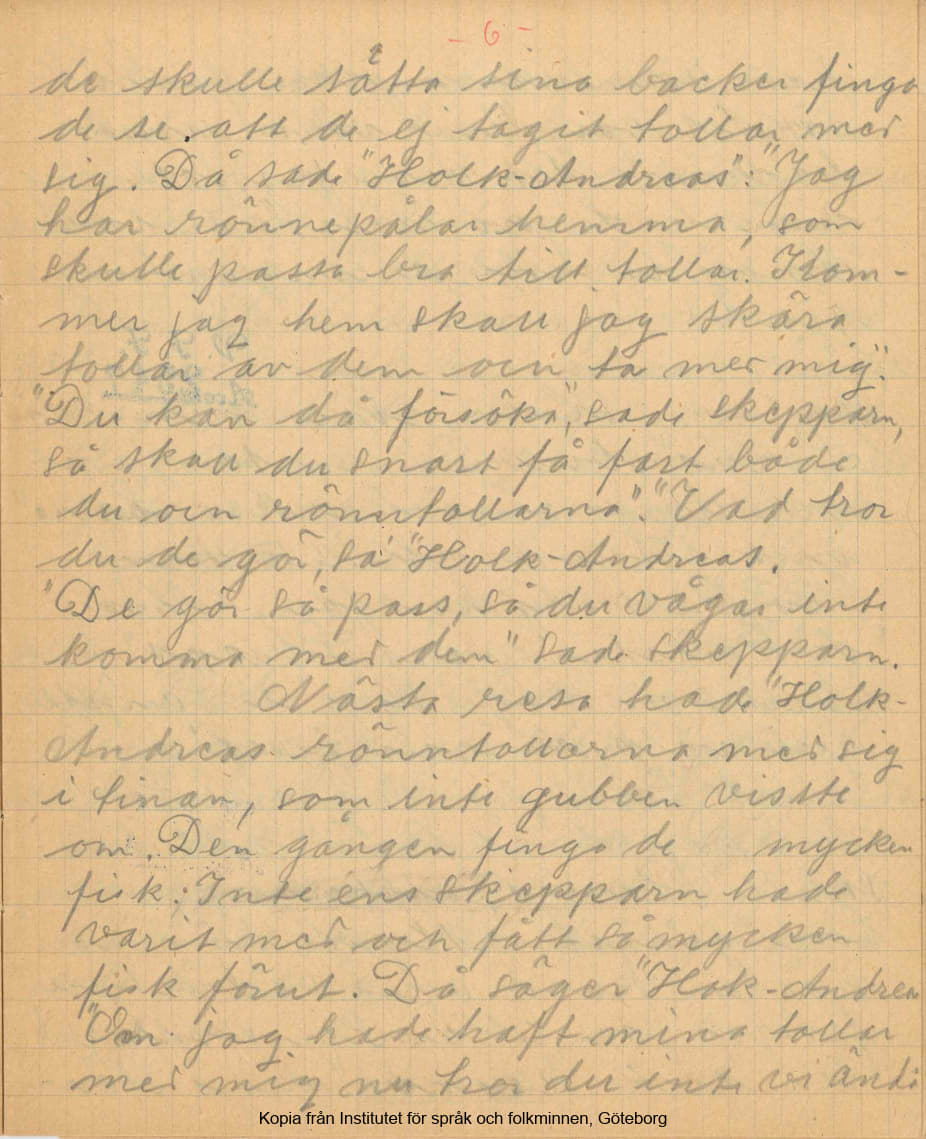 - 6 -
de skulle sätta sina backer fingo
de se att de ej tagit tollar med
sig. Då sade "Holk-Andreas": "Jag
har rönnepålar hemma, som
skulle passa bra till tollar. Kom-
mer jag hem skall jag skära
tollar av dem och ta med mig".
"Du kan då försöka", sade skepparn,
så skall du snart få fart både
du och rönntollarna". "Vad tror
du de gör, sa "Holk-Andreas.
"De gör så pass, så du vågar inte
komma med dem" sade skepparn.
Nästa resa hade "Holk-
Andreas rönntollarna med sig
i finan, som inte gubben visste
om. Den gången fingo de mycken
fisk. Inte ens skepparn hade
varit med och fått så mycken
fisk förut. Då säger "Hok-Andreas
"Om jag hade haft mina tollar
med mig nu tror du inte vi ändå
Kopia från Institutet för språk och folkminnen, Göteborg